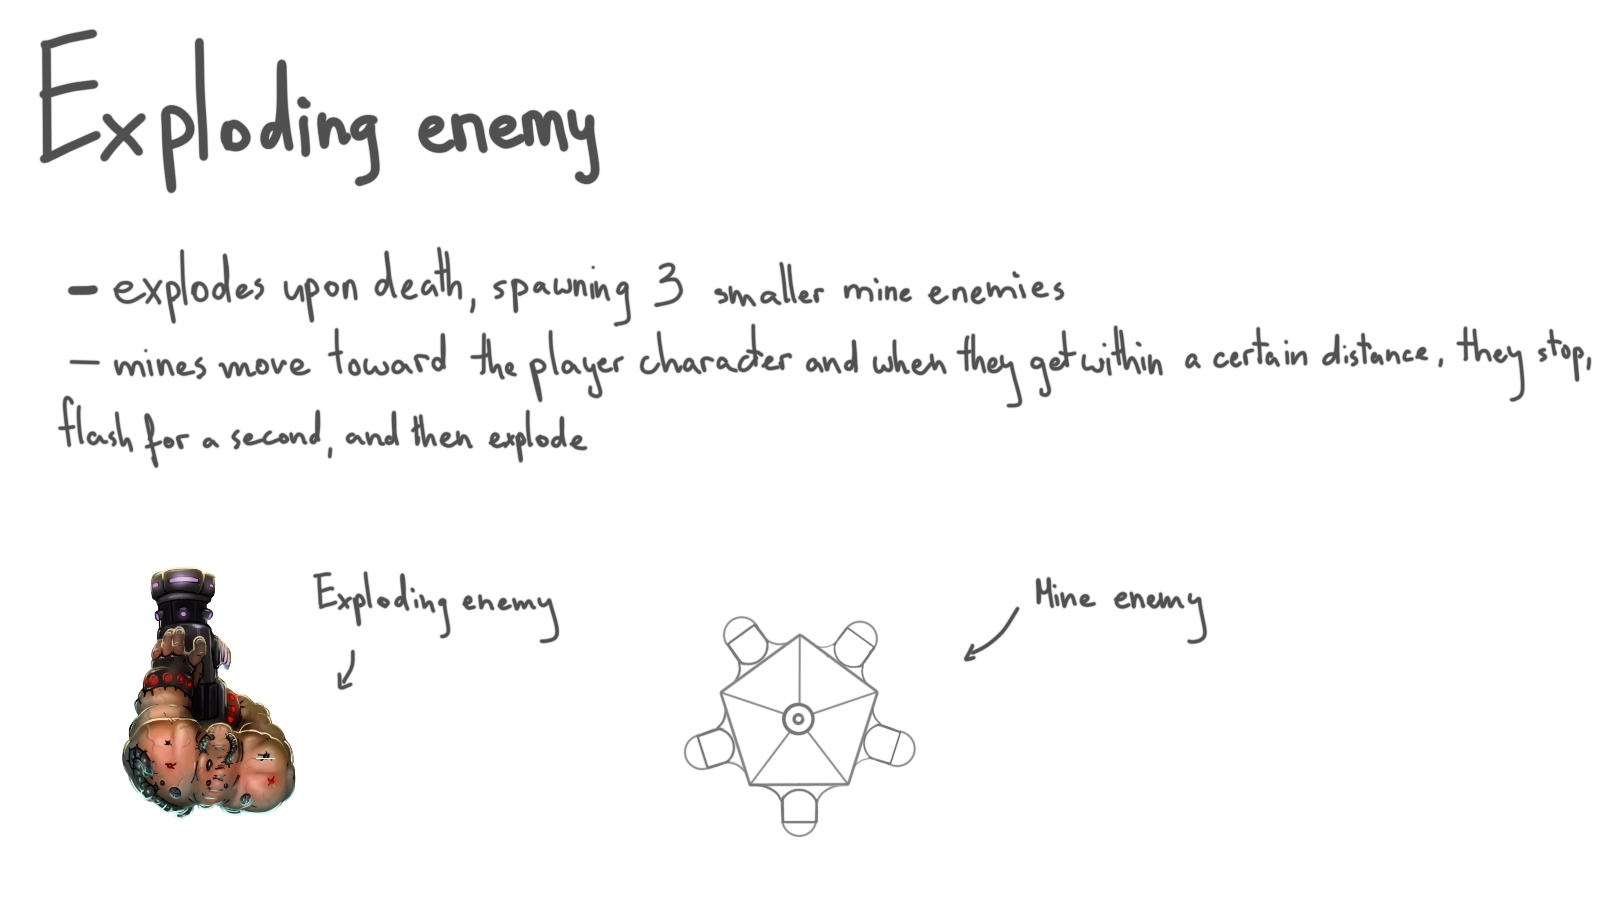 Exploding enemy
- explodes upon death, spawning 3 smaller mine enemies
- mines move toward the player character and when they get within a certain distance, they stop,
flash for a second, and then explode
Exploding enemy
Mine enemy